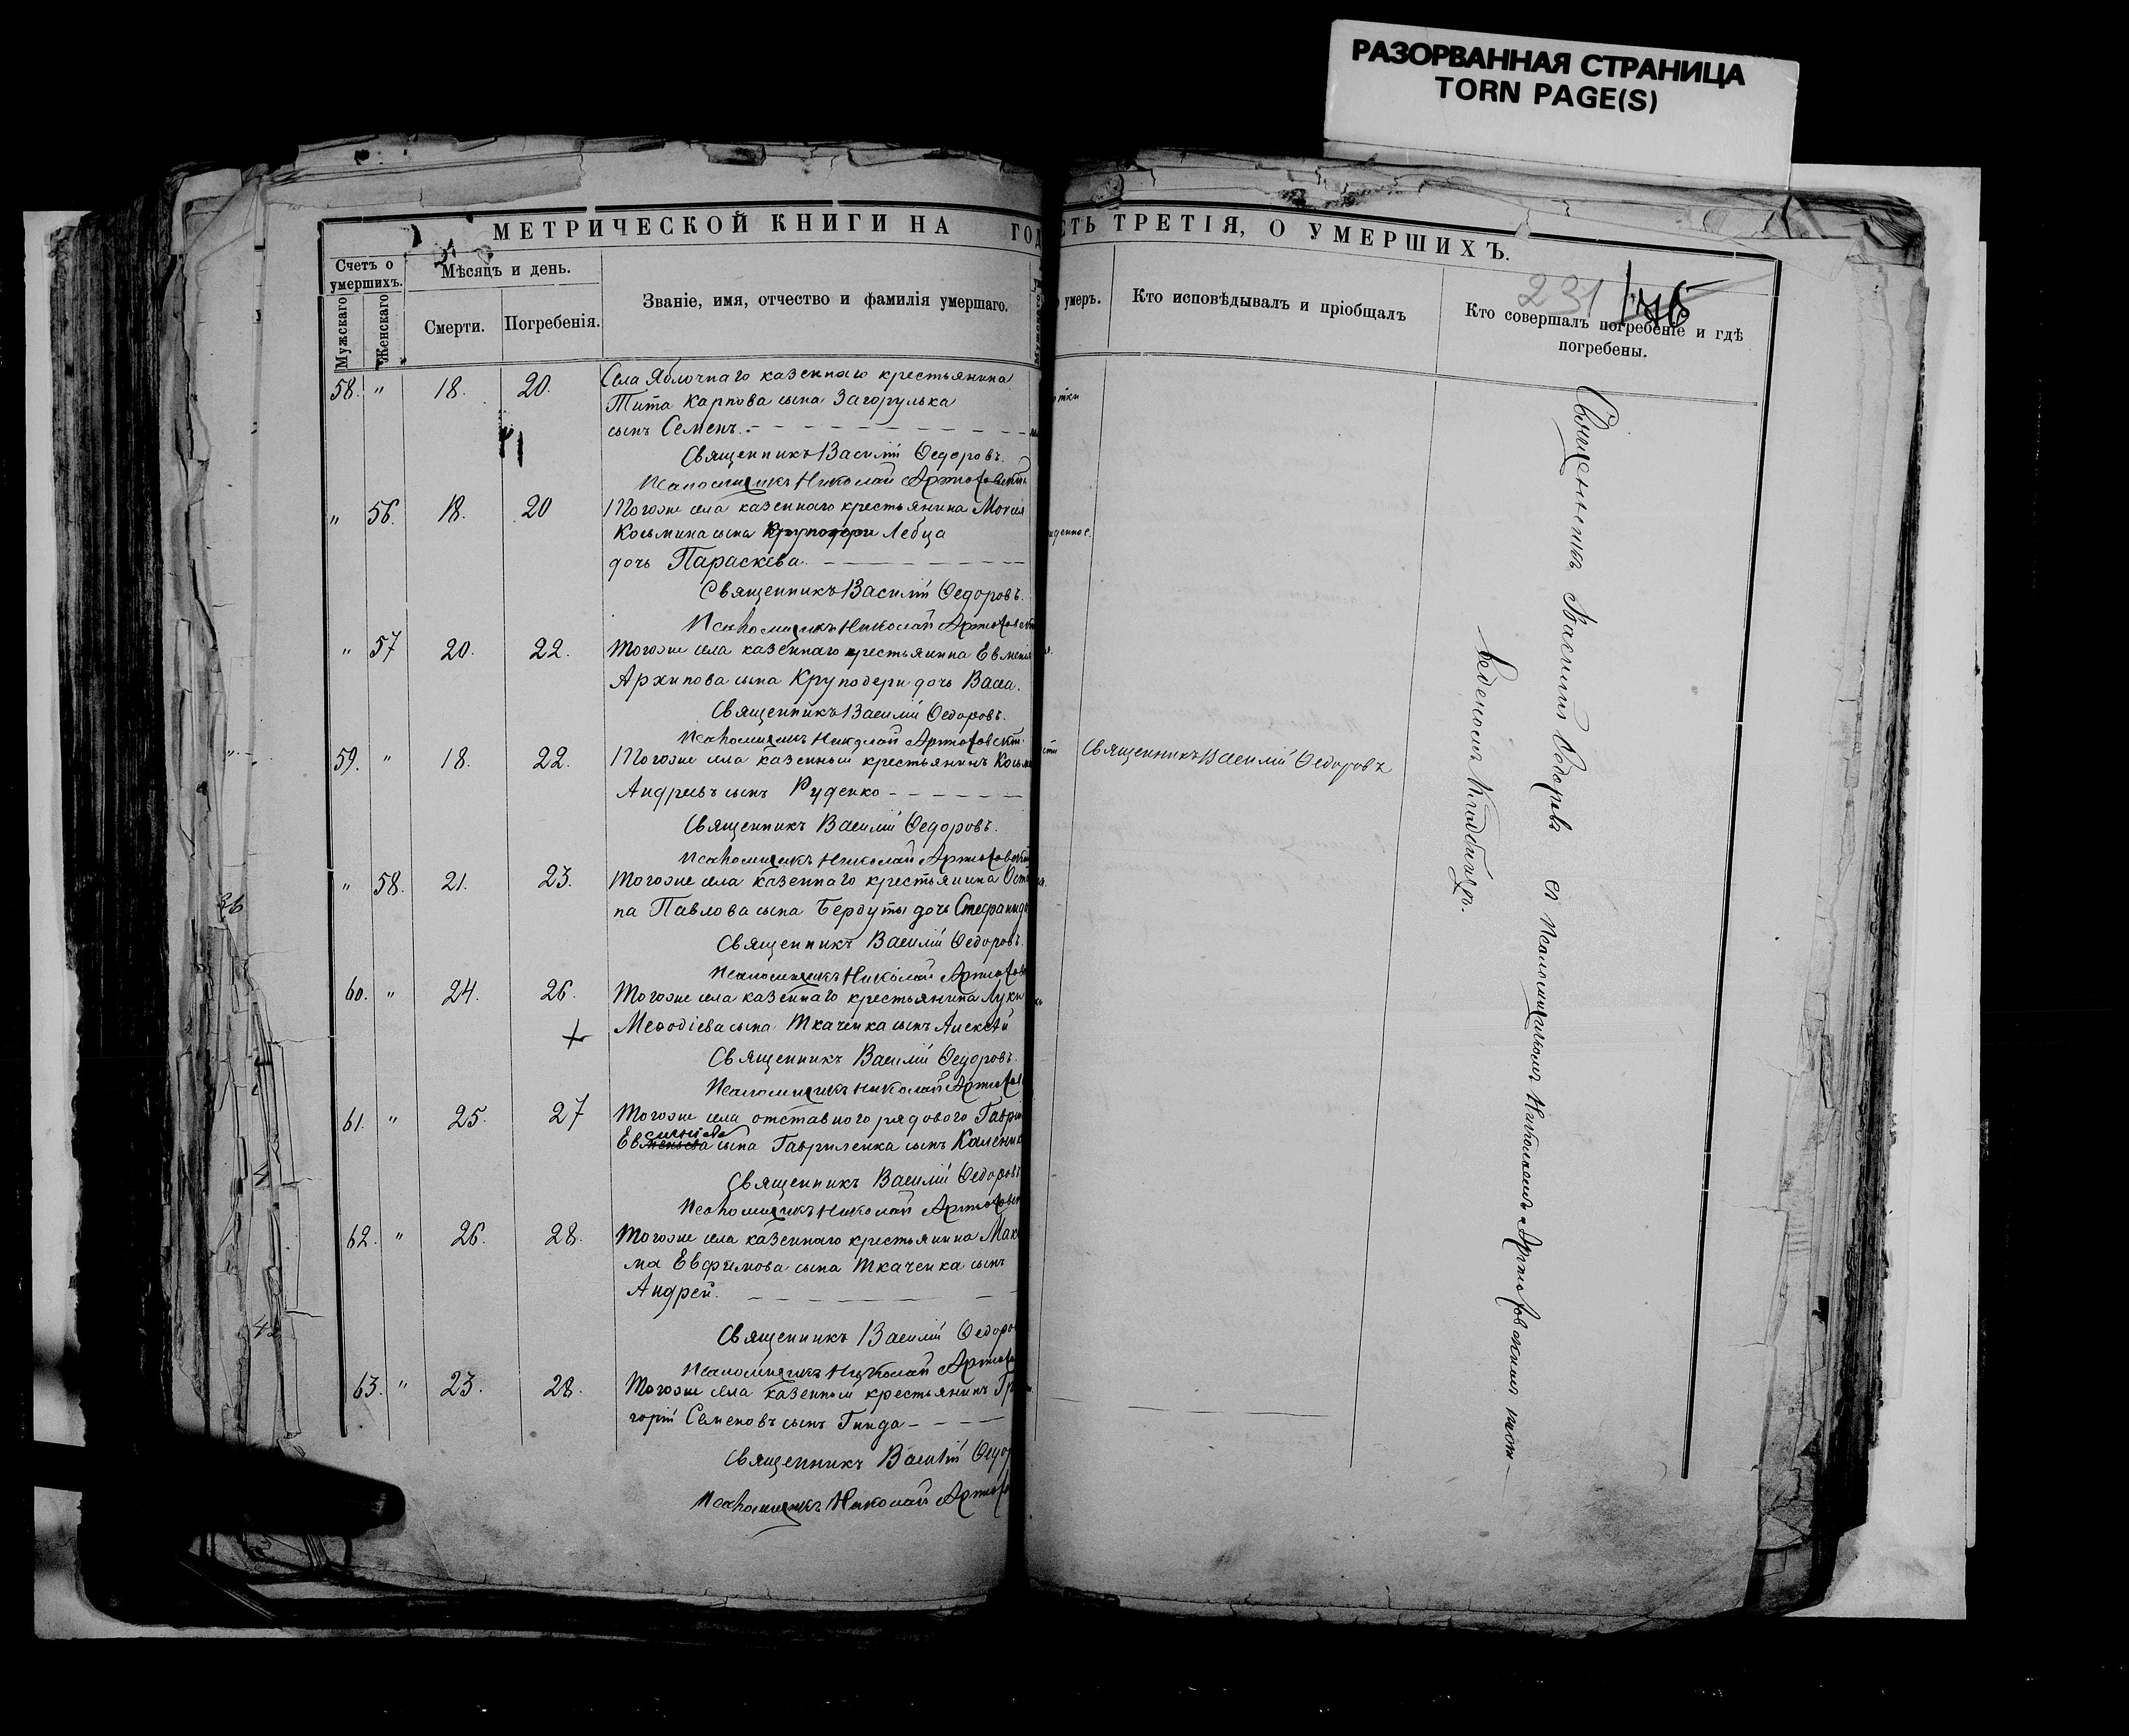 РАЗОРВАННАЯ СТРАНИЦА
TORN PAGE(S)
МЕТРИЧЕСКОЙ КНИГИ НА ГОД
СТЬ ТРЕТІЯ, О УМЕРШИХЪ.
Счетъ о умершихъ.
Мужскаго
Женскаго
Мѣсяцъ и день.
Смерти.
Погребенія.
Званіе, имя, отчество и фамилія умершаго.
умеръ.
Кто исповѣдывалъ и пріобщалъ
Кто совершалъ погребеніе и гдѣ
погребены.
231
176
58. " 18. 20. Села Яблочнаго казеннаго крестьянина
Тита Карпова сына Загорулька
сынъ Семенъ.
Священникъ Василій Ѳедоровъ.
Псаломщикъ Николай
" 56. 18. 20 Тогоже села казеннаго крестьянина Мокія
Косьмина сына Лебца
дочь Параскева.
Священникъ Василій Ѳедоровъ.
Псаломщикъ Николай
" 57 20. 22. Тогоже села казеннаго крестьянина Евменія
Архипова сына Круподери дочь Васса.
Священникъ Василій Ѳедоровъ.
Псаломщикъ Николай
59. " 18. 22. Тогоже села казенный крестьянинъ Косьма
Андреевъ сынъ Руденко
Священникъ Василій Ѳедоровъ.
Псаломщикъ Николай
Священникъ Василій Ѳедоровъ
" 58. 21. 23. Тогоже села казеннаго крестьянина Оста
па Павлова сына Бердуты дочь Стефанида
Священникъ Василій Ѳедоровъ.
Псаломщикъ Николай
60. " 24. 26. Тогоже села казеннаго крестьянина Луки
Меѳодіева сына Ткаченка сынъ Алексѣй
Священникъ Василій Ѳедоровъ.
Псаломщикъ Николай
61. " 25. 27 Тогоже села отставного рядового Гаврі
сына Гавриленка сынъ Каленик
Священникъ Василій Ѳедоровъ
Псаломщикъ Николай
62. " 26. 28. Тогоже села казеннаго крестьянина Мак
ма Евфимова сына Ткаченка сынъ
Андрей.
Священникъ Василій Ѳедоро
Псаломщикъ Николай
63. " 23. 28. Тогоже села казенный крестьянинъ Гр
горій Семеновъ сынъ Гнида
Священникъ Василій Ѳедо
Псаломщикъ Николай
Священникъ Василій Ѳедоровъ съ Псаломщикомъ Николаемъ
кладбищѣ.